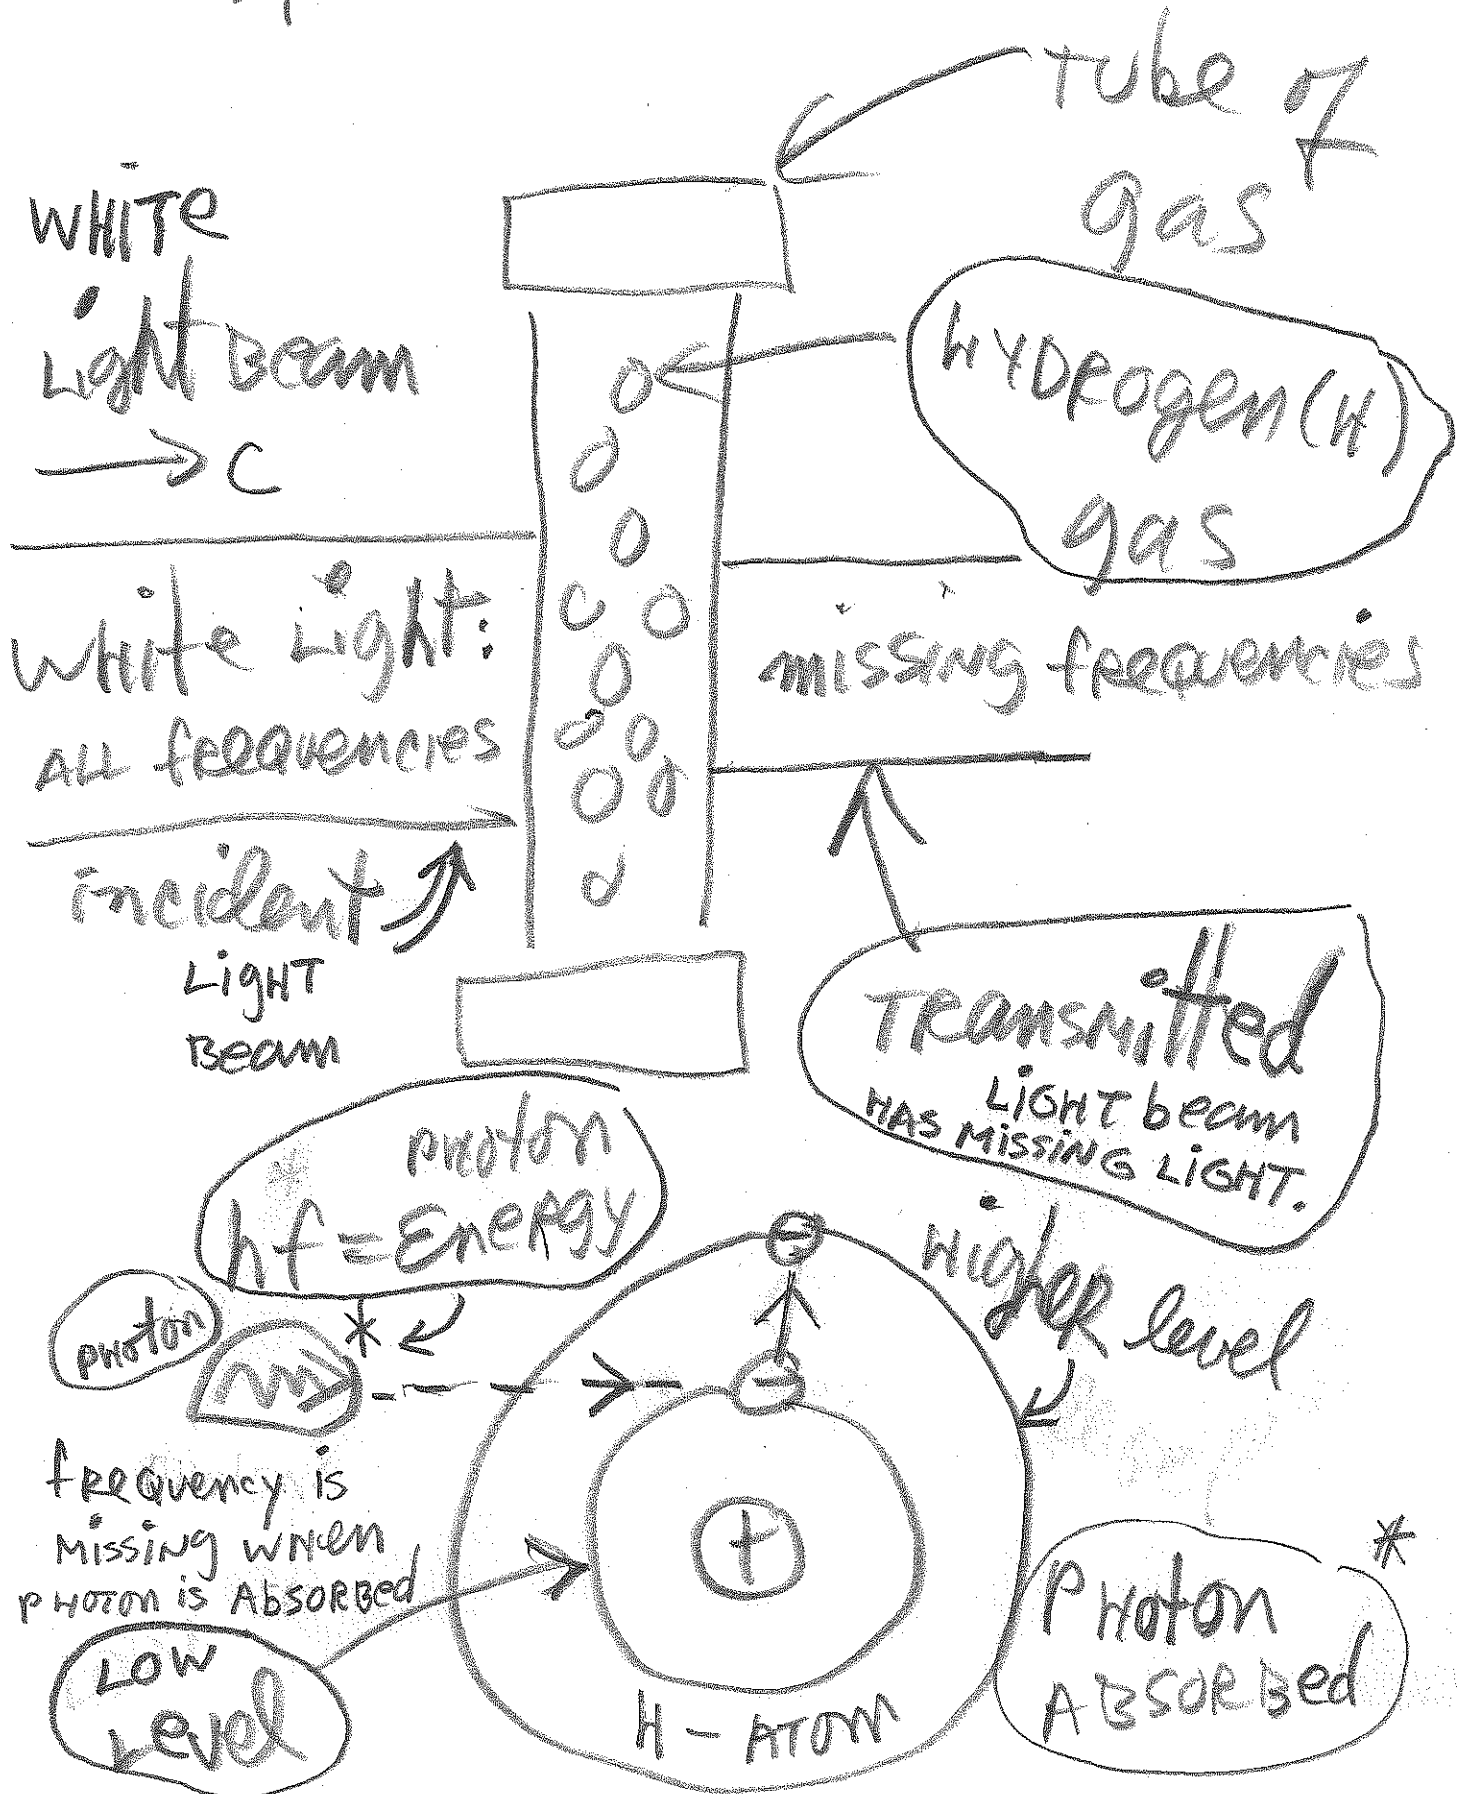 Tube of
gas
WHITe
Light Beam
→ C
HYDROgen (H)
gas
WHite Light:
ALL fRequencies
missiNg fRequencies
incident
LigHT
Beam
TRansmitted
LiGHT beam
HAS MissiNG LiGHT.
PHoton
hf = EneRgy
pHoton
*
HigheR level
fRequency is
MissiNg wHen
pHoTon is AbsoRBed
Low
Level
-
-
+
H - ATom
PHoton *
ABSORBed